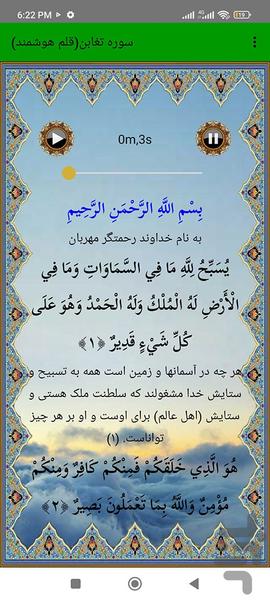 6:22 PM
سوره تغابن(قلم هوشمند)
0m,3s
بِسْمِ اللَّهِ الرَّحْمَنِ الرَّحِيمِ
به نام خداوند رحمتگر مهربان
يُسَبِّحُ لِلَّهِ مَا فِي السَّمَاوَاتِ وَمَا فِي
الْأَرْضِ لَهُ الْمُلْكُ وَلَهُ الْحَمْدُ وَهُوَ عَلَى
كُلِّ شَيْءٍ قَدِيرٌ ﴿۱﴾
هر چه در آسمانها و زمین است همه به تسبیح و
ستایش خدا مشغولند که سلطنت ملک هستی و
ستایش (اهل عالم) برای اوست و او بر هر چیز
تواناست. (۱)
هُوَ الَّذِي خَلَقَكُمْ فَمِنْكُمْ كَافِرٌ وَمِنْكُمْ
مُؤْمِنٌ وَاللَّهُ بِمَا تَعْمَلُونَ بَصِيرٌ ﴿۲﴾